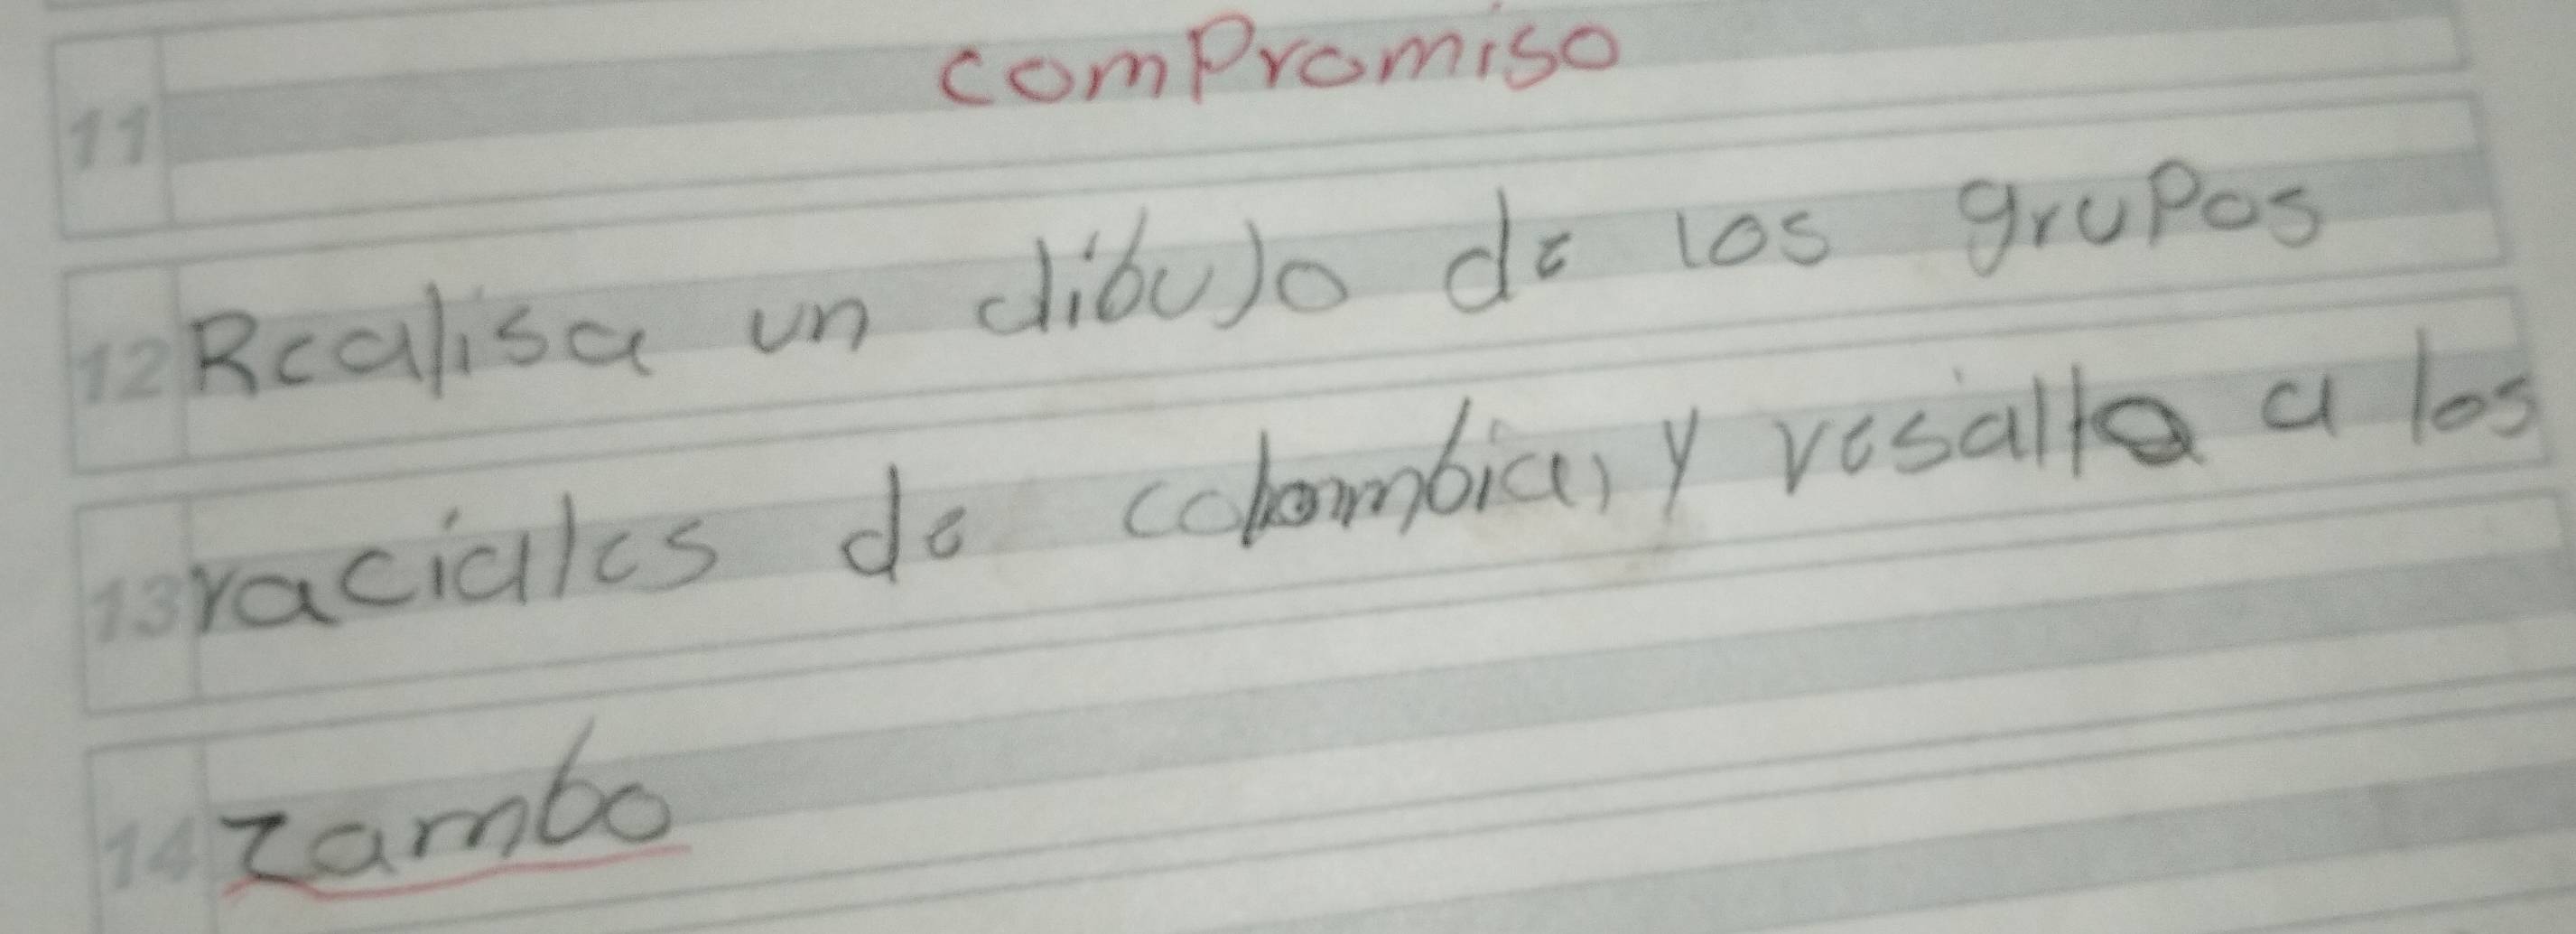 11 comPromiso
12 Realisa un dibujo de los gruPos
13 raciales de colombia, y resalta a los
14 zambo